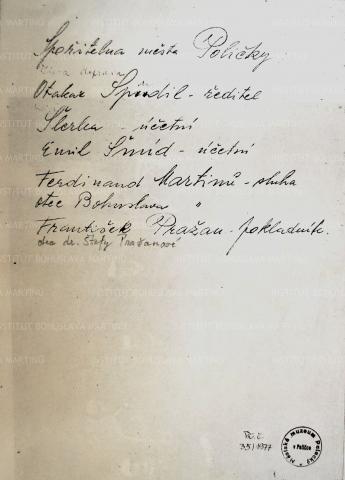 Spořitelna města Poličky.
Otakar Špindil - ředitel
Šterba - účetní
Emil Šmíd - účetní
Ferdinand Martinů - sluha
otec Bohuslava "
František Pražan - pokladník.
otec dr. Stáfy Pražanové
Př. č.
35/1977
Městské muzeum
v Poličce
INSTITUT BOHUSLAVA MARTINŮ